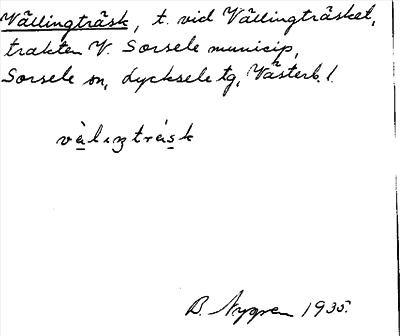 Vällingträsk, t. vid Vällingträsket,
trakten V. Sorsele municip,
Sorsele sn, Lycksele tg, Västerb. l.
vàlıŋtrásk
B. Nygren 1935.